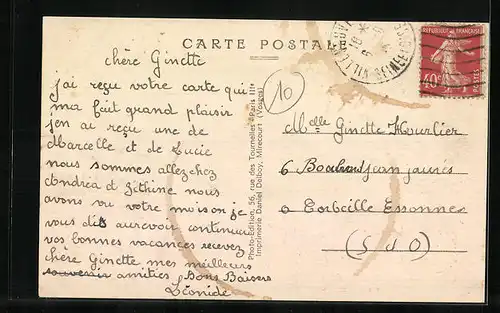 CARTE POSTALE
chère Ginette
j'ai reçu votre carte qui
ma fait grand plaisir
j'en ai reçu une de
Marcelle et de Lucie
nous sommes allez chez
Andréa et nous
avons vu votre maison je
vous dit aurevoir continuez
vos bonnes vacances recevez
chère Ginette mes meilleurs
souvenir amitiés Bons Baisers
Léonide
Photo-Edition, 56, rue des Tournelles - Paris IIIe
Imprimerie Daniel Delboy, Mirecourt (Vosges)
10
REPUBLIQUE FRANÇAISE
40c
POSTES
Melle Ginette Hourlier
6 Boulevard jean jaurès
à Corbeille Essonnes
(S et O)